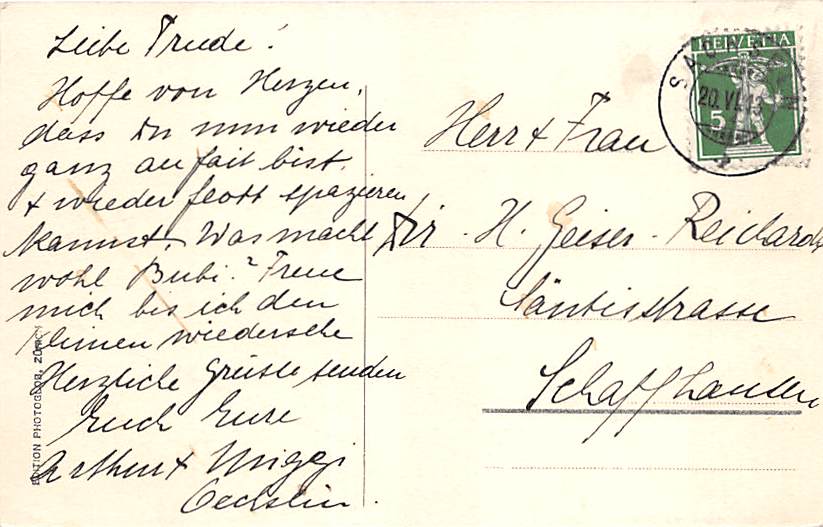 Liebe Trude!
Hoffe von Herzen,
dass Du nun wieder
ganz au fait bist.
+ wieder flott spazieren
kannst. Was macht
wohl Bubi? Freue
mich bis ich den
kleinen wiedersehe
Herzliche Grüsse senden
Euch Eure
Arthur + Miggi
Oechslin.
HELVETIA
5
20.VI.
Herr + Frau
Dir. H. Geiser-Reichardt
Säntisstrasse
Schaffhausen
EDITION PHOTOGLOB, ZÜRICH